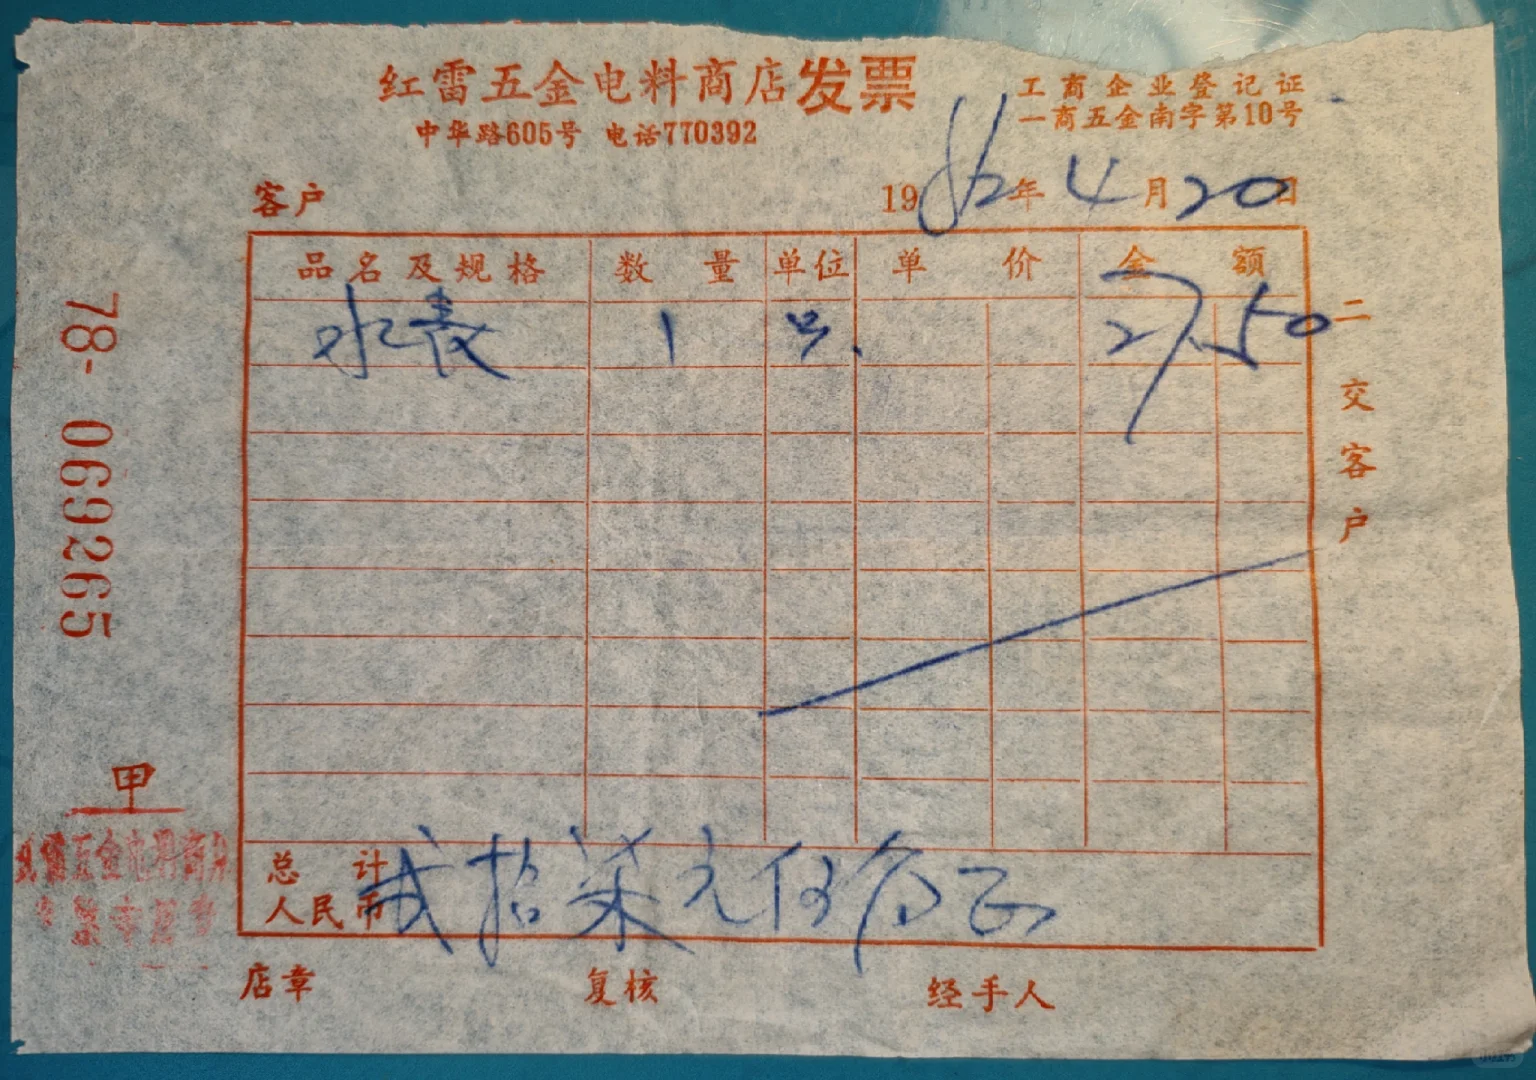 红雷五金电料商店发票
中华路605号 电话770392
工商企业登记证
一商五金南字第10号
客户
1982年4月20日
品名及规格 数量 单位 单价 金额
水表 1 只. 27.50
二交客户
78-069265
甲
总计
人民币 贰拾柒元伍角正
店章 复核 经手人
红雷五金电料商店